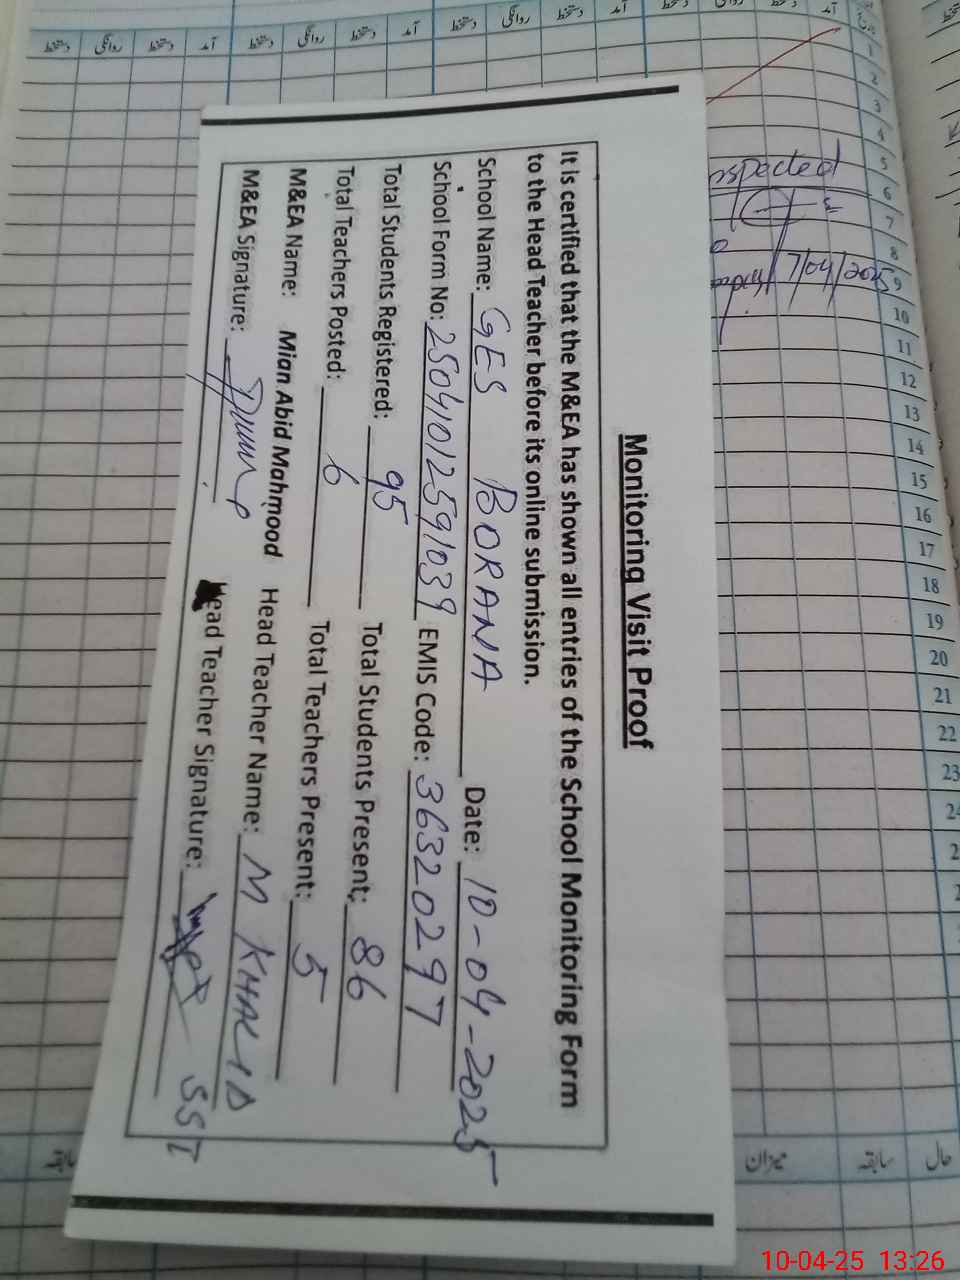 Monitoring Visit Proof
It is certified that the M&EA has shown all entries of the School Monitoring Form
to the Head Teacher before its online submission.
School Name: GES BORANA Date: 10-04-2025
School Form No: 2504012591039 EMIS Code: 36320297
Total Students Registered: 95 Total Students Present: 86
Total Teachers Posted: 6 Total Teachers Present: 5
M&EA Name: Mian Abid Mahmood Head Teacher Name: M KHALID
M&EA Signature: Head Teacher Signature: SST
دستخط روانگی دستخط آمد دستخط روانگی دستخط آمد دستخط روانگی دستخط
1
2
3
4
5
6
7
8
9
10
11
12
13
14
15
16
17
18
19
20
21
22
23
حال
سابقہ
میزان
سابقہ
10-04-25 13:26